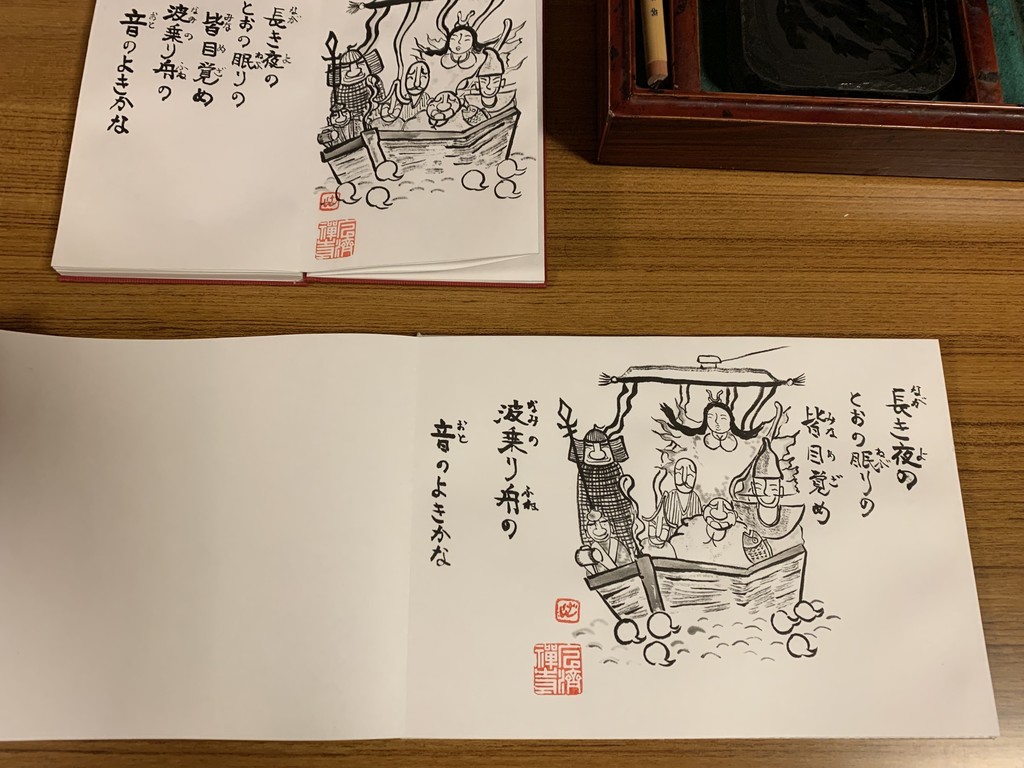 長き夜の
とおの眠りの
皆目覚め
波乗り舟の
音のよきかな
長き夜の
とおの眠りの
皆目覚め
波乗り舟の
音のよきかな